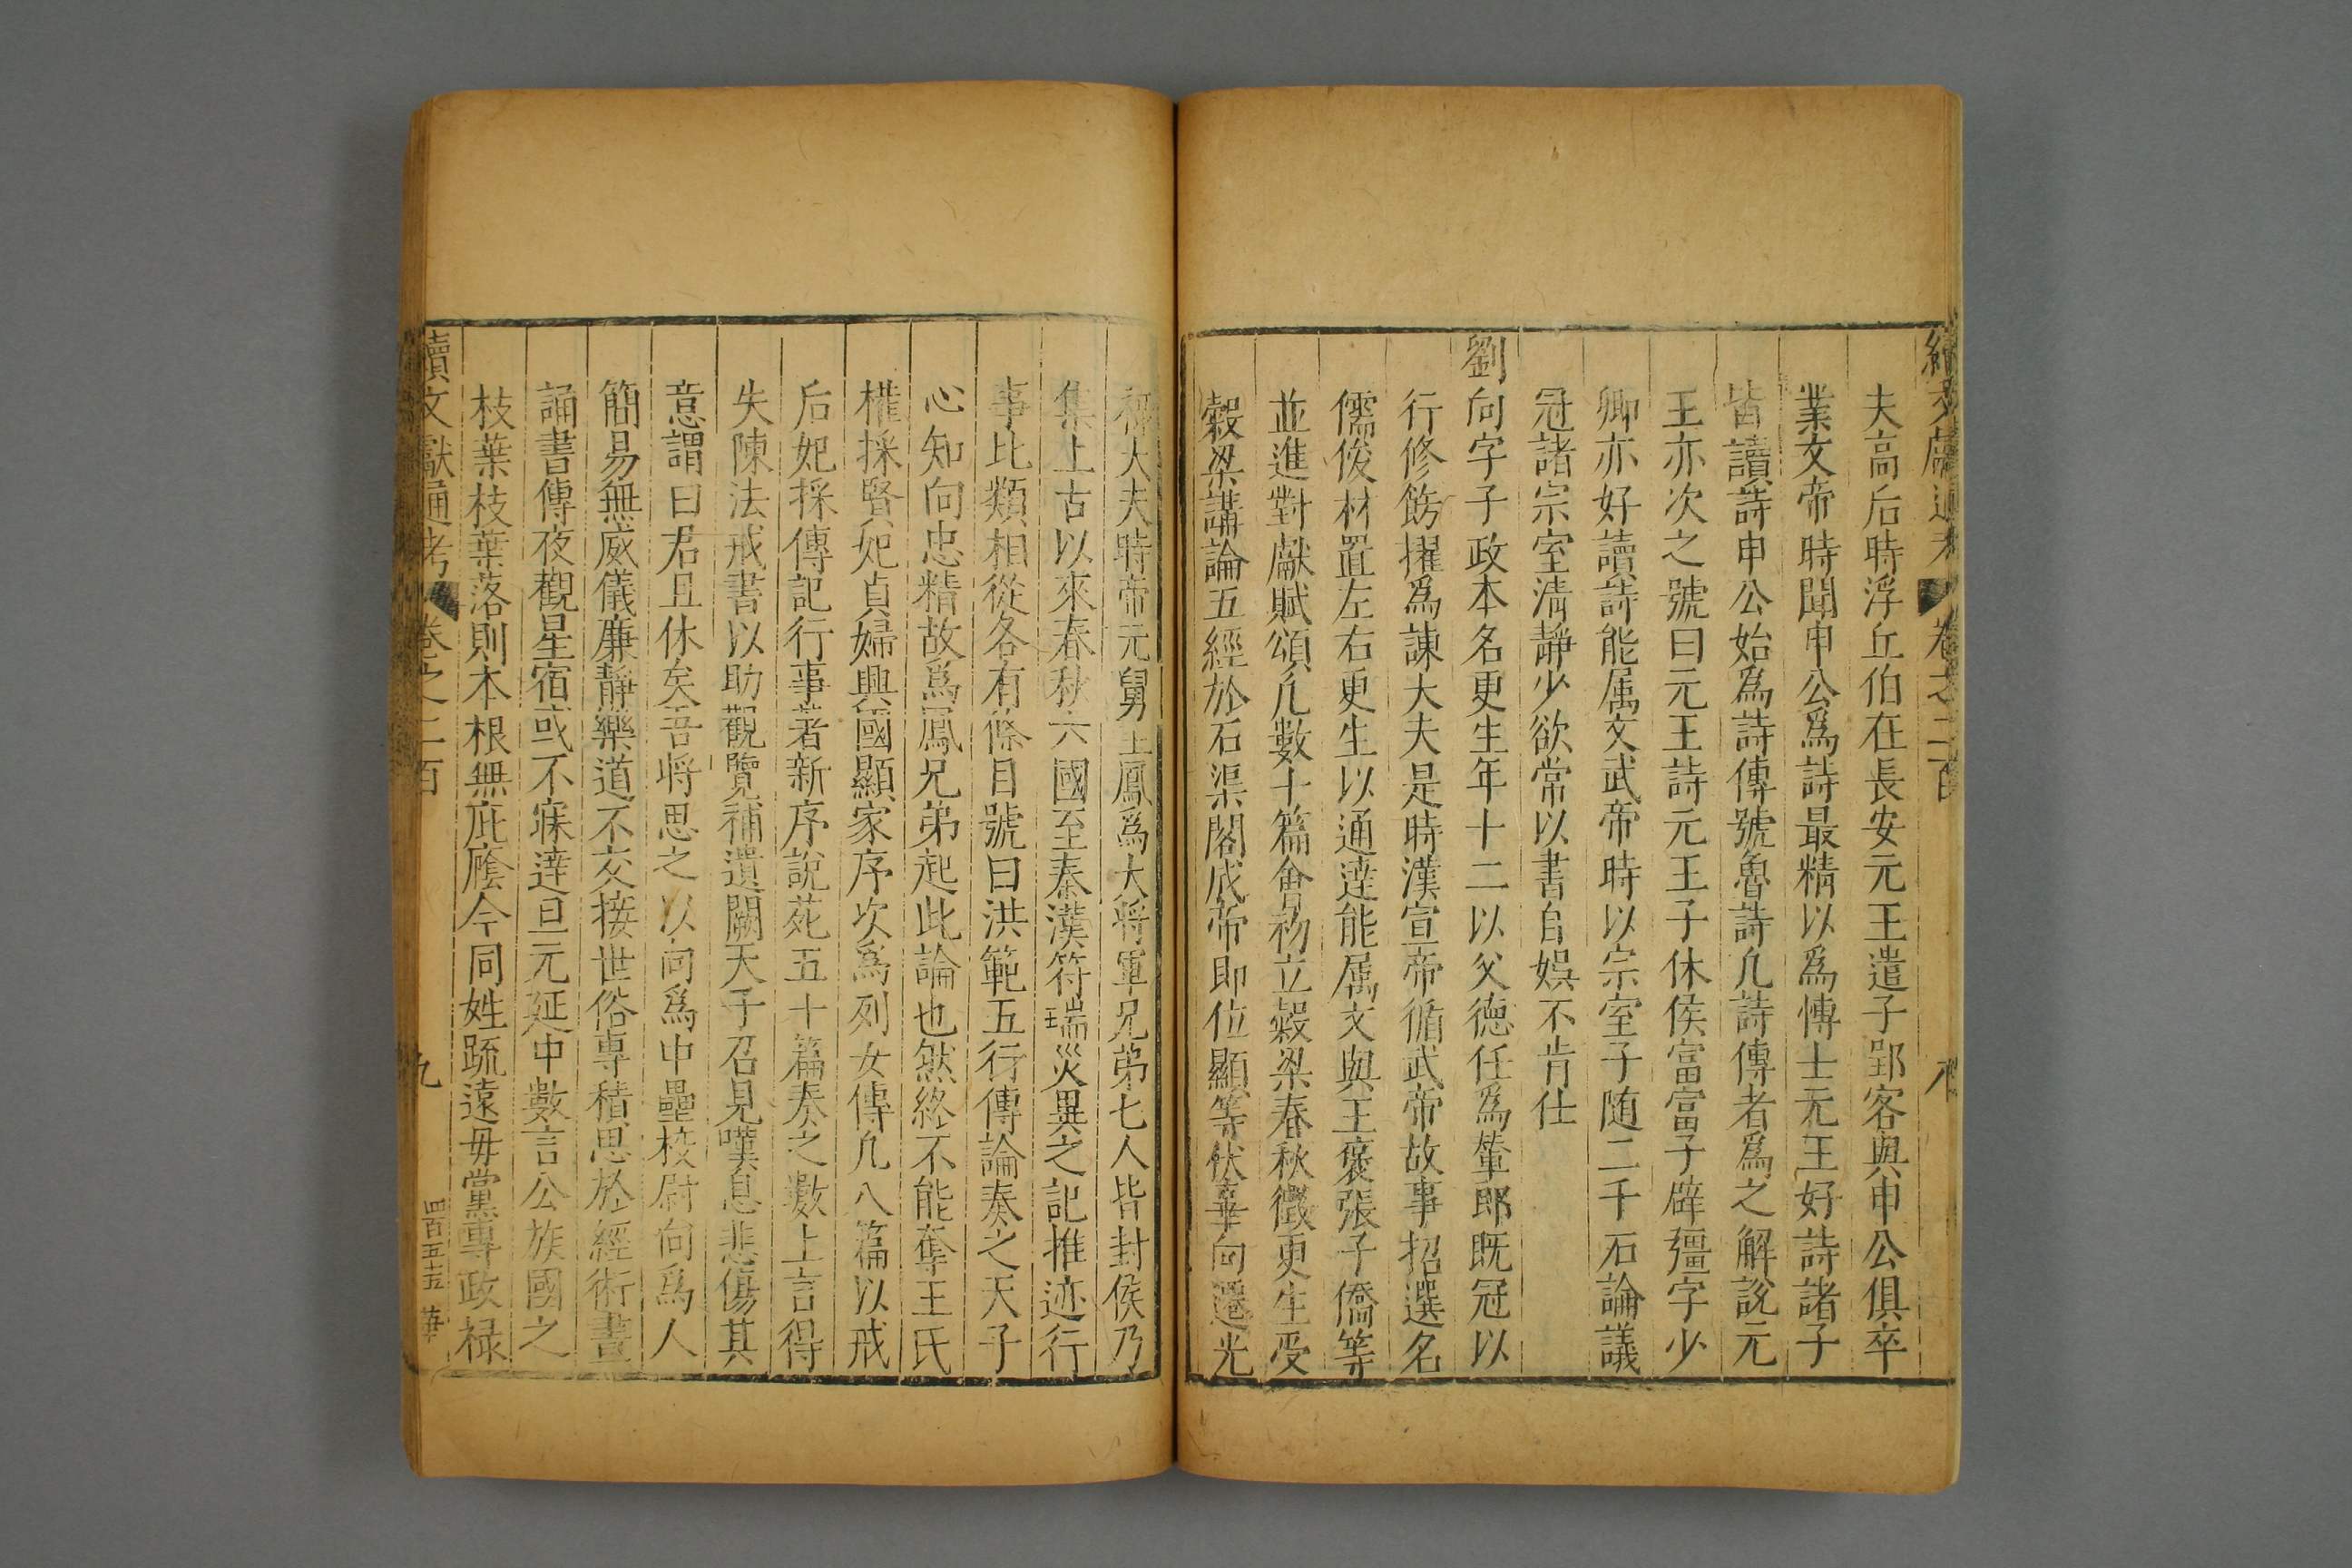 續文獻通考 卷之二百 八
夫高后時浮丘伯在長安元王遣子郢客與申公俱卒
業文帝時聞申公爲詩最精以爲博士元王好詩諸子
皆讀詩申公始爲詩傳號魯詩凡詩傳者爲之解說元
王亦次之號曰元王詩元王子休侯富富子辟彊字少
卿亦好讀詩能属文武帝時以宗室子随二千石論議
冠諸宗室清靜少欲常以書自娯不肯仕
劉向字子政本名更生年十二以父德任爲輦郎既冠以
行修飭擢爲諫大夫是時漢宣帝循武帝故事招選名
儒俊材置左右更生以通達能属文與王褒張子僑等
並進對獻賦頌凡數十篇會初立穀梁春秋徵更生受
穀梁講論五經於石渠閣成帝即位顯等伏辜向遷光
祿大夫時帝元舅王鳳爲大將軍兄弟七人皆封侯乃
集上古以來春秋六國至秦漢符瑞災異之記推迹行
事比類相從各有條目號曰洪範五行傳論奏之天子
心知向忠精故爲鳳兄弟起此論也然終不能奪王氏
權採賢妃貞婦興國顯家序次爲列女傳凡八篇以戒
后妃採傳記行事著新序說苑五十篇奏之數上言得
失陳法戒書以助觀覽補遺闕天子召見嘆息悲傷其
意謂曰君且休矣吾將思之以向爲中壘校尉向爲人
簡易無威儀廉靜樂道不交接世俗專積思於經術晝
誦書傳夜觀星宿或不寐達旦元延中數言公族國之
枝葉枝葉落則本根無庇廕今同姓踈遠毋黨專政禄
續文獻通考 卷之二百 九 四百五十五 華